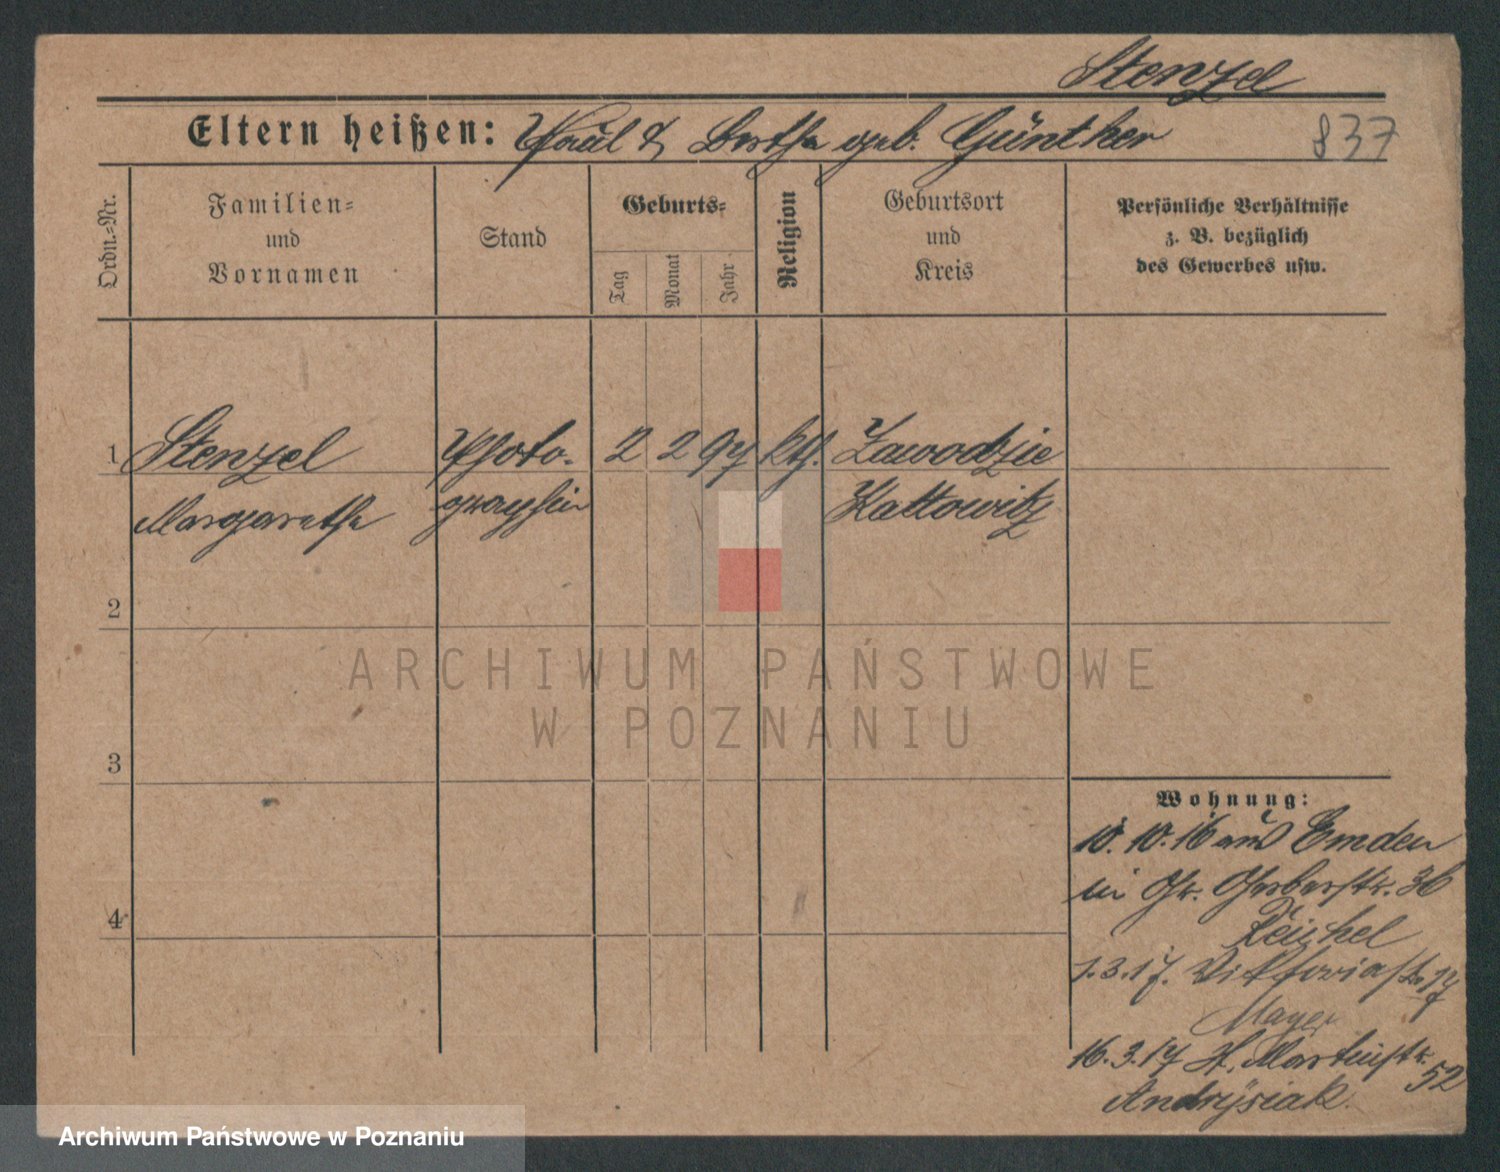 Stenzel
Eltern heißen: Paul & Bertha geb. Günther 837
Ordn.-Nr.
Familien- und Vornamen
Stand
Geburts-
Tag
Monat
Jahr
Religion
Geburtsort und Kreis
Persönliche Verhältnisse
z. B. bezüglich
des Gewerbes usw.
1 Stenzel Photo- 2 2 97 kth. Zawodzie
Margarethe graphin Kattowitz
2
3
4
Wohnung:
10.10.16 aus Emden
in Gr. Gerberstr. 36
Reichel
1.3.17. Viktoriastr. 17
Mayer
16.3.17 St. Martinstr. 52
Andrysiak.
ARCHIWUM PAŃSTWOWE
W POZNANIU
Archiwum Państwowe w Poznaniu